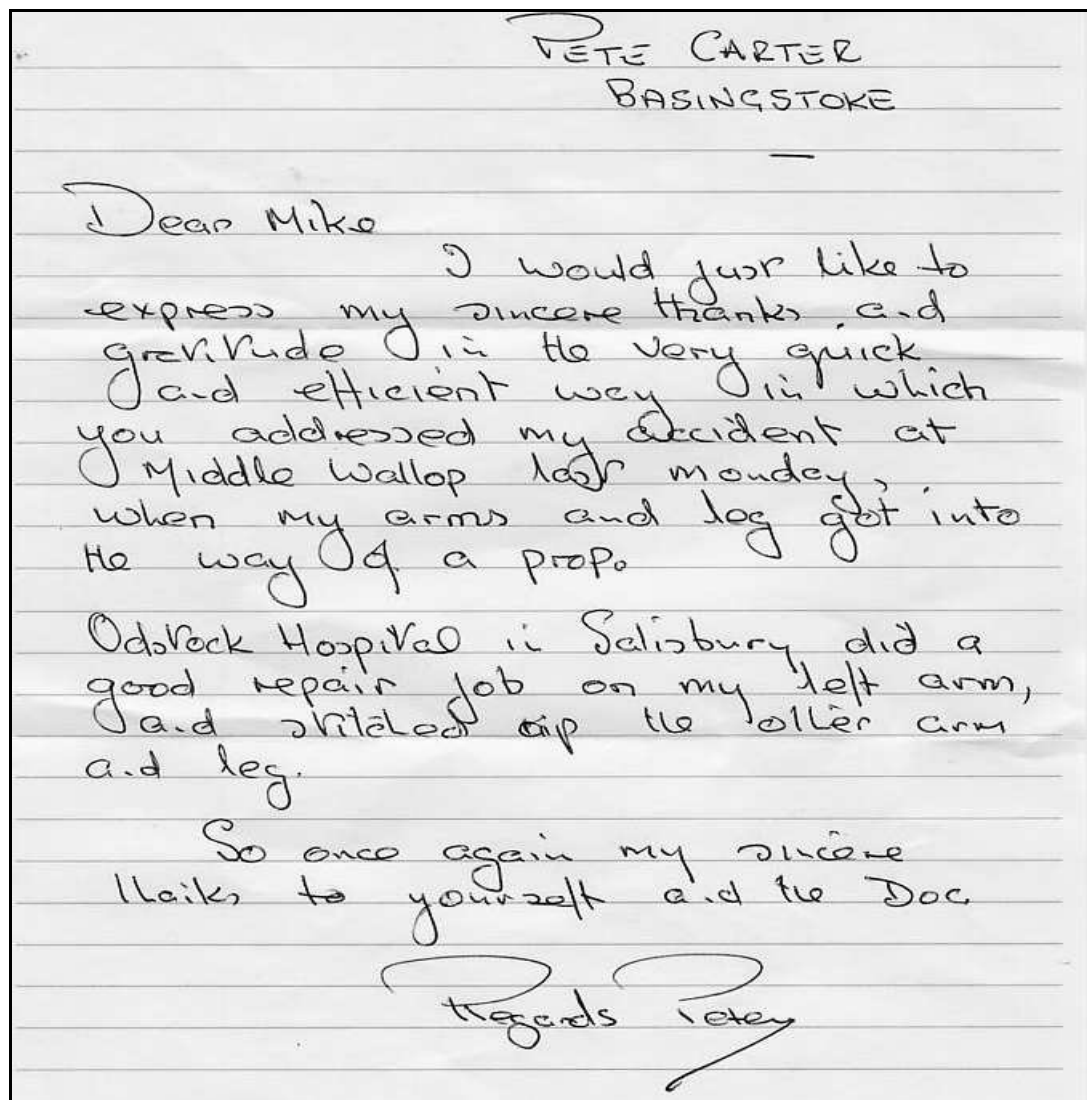 PETE CARTER
BASINGSTOKE
Dear Mike
I would just like to
express my sincere thanks and
gratitude in the very quick
and efficient way in which
you addressed my accident at
Middle Wallop last monday,
when my arms and leg got into
the way of a prop.
Odstock Hospital in Salisbury did a
good repair job on my left arm,
and stitched up the other arm
and leg.
So once again my sincere
thanks to yourself and the Doc
Regards Peter